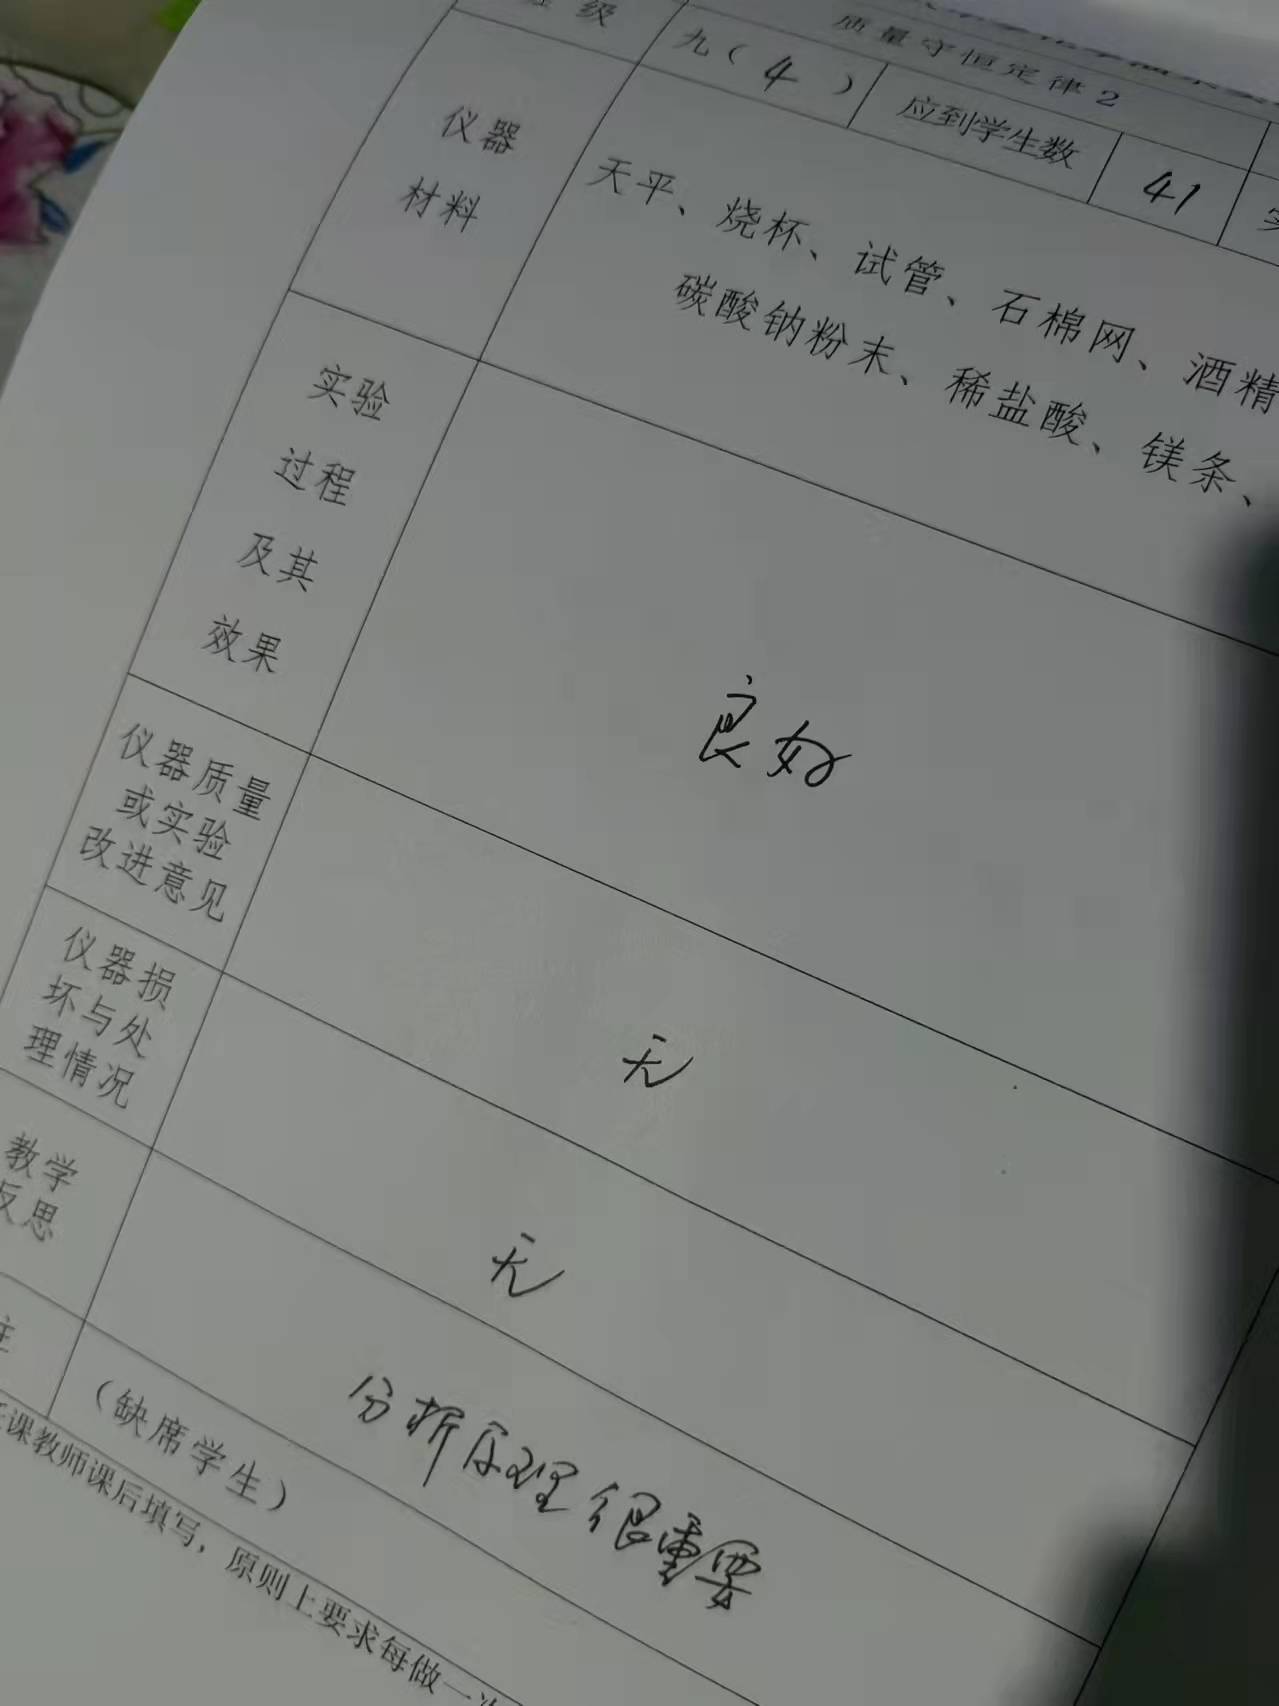 质量守恒定律2
级
九(4)
应到学生数
41
仪器
材料
天平、烧杯、试管、石棉网、酒精
碳酸钠粉末、稀盐酸、镁条、
实验
过程
及其
效果
良好
仪器质量
或实验
改进意见
无
仪器损
坏与处
理情况
无
教学
反思
分析原理很重要
注
(缺席学生)
课教师课后填写,原则上要求每做一